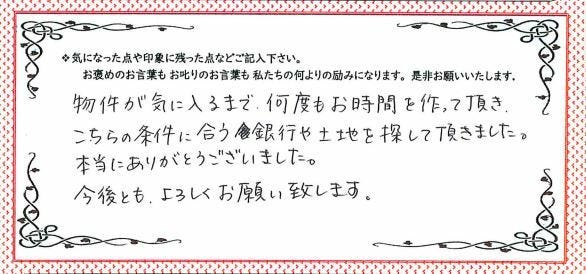 ❖気になった点や印象に残った点などご記入下さい。
お褒めのお言葉も お叱りのお言葉も 私たちの何よりの励みになります。是非お願いいたします。
物件が気に入るまで、何度もお時間を作って頂き、
こちらの条件に合う銀行や土地を探して頂きました。
本当にありがとうございました。
今後とも、よろしくお願い致します。